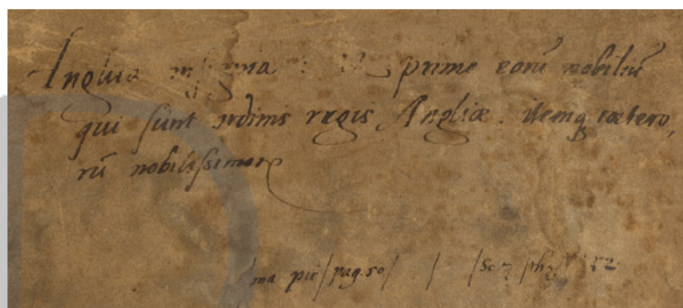 Angliæ insignia prime eorū nobiliū
qui sunt ordinis regis Angliæ. itemq cætero,
rū nobilissimor
ma pic/pag.50/ /